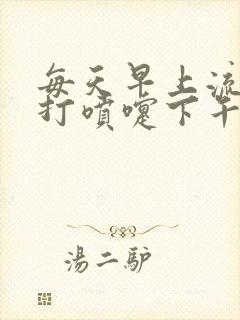 每天早上流
打噴嚏下午
湯二驴